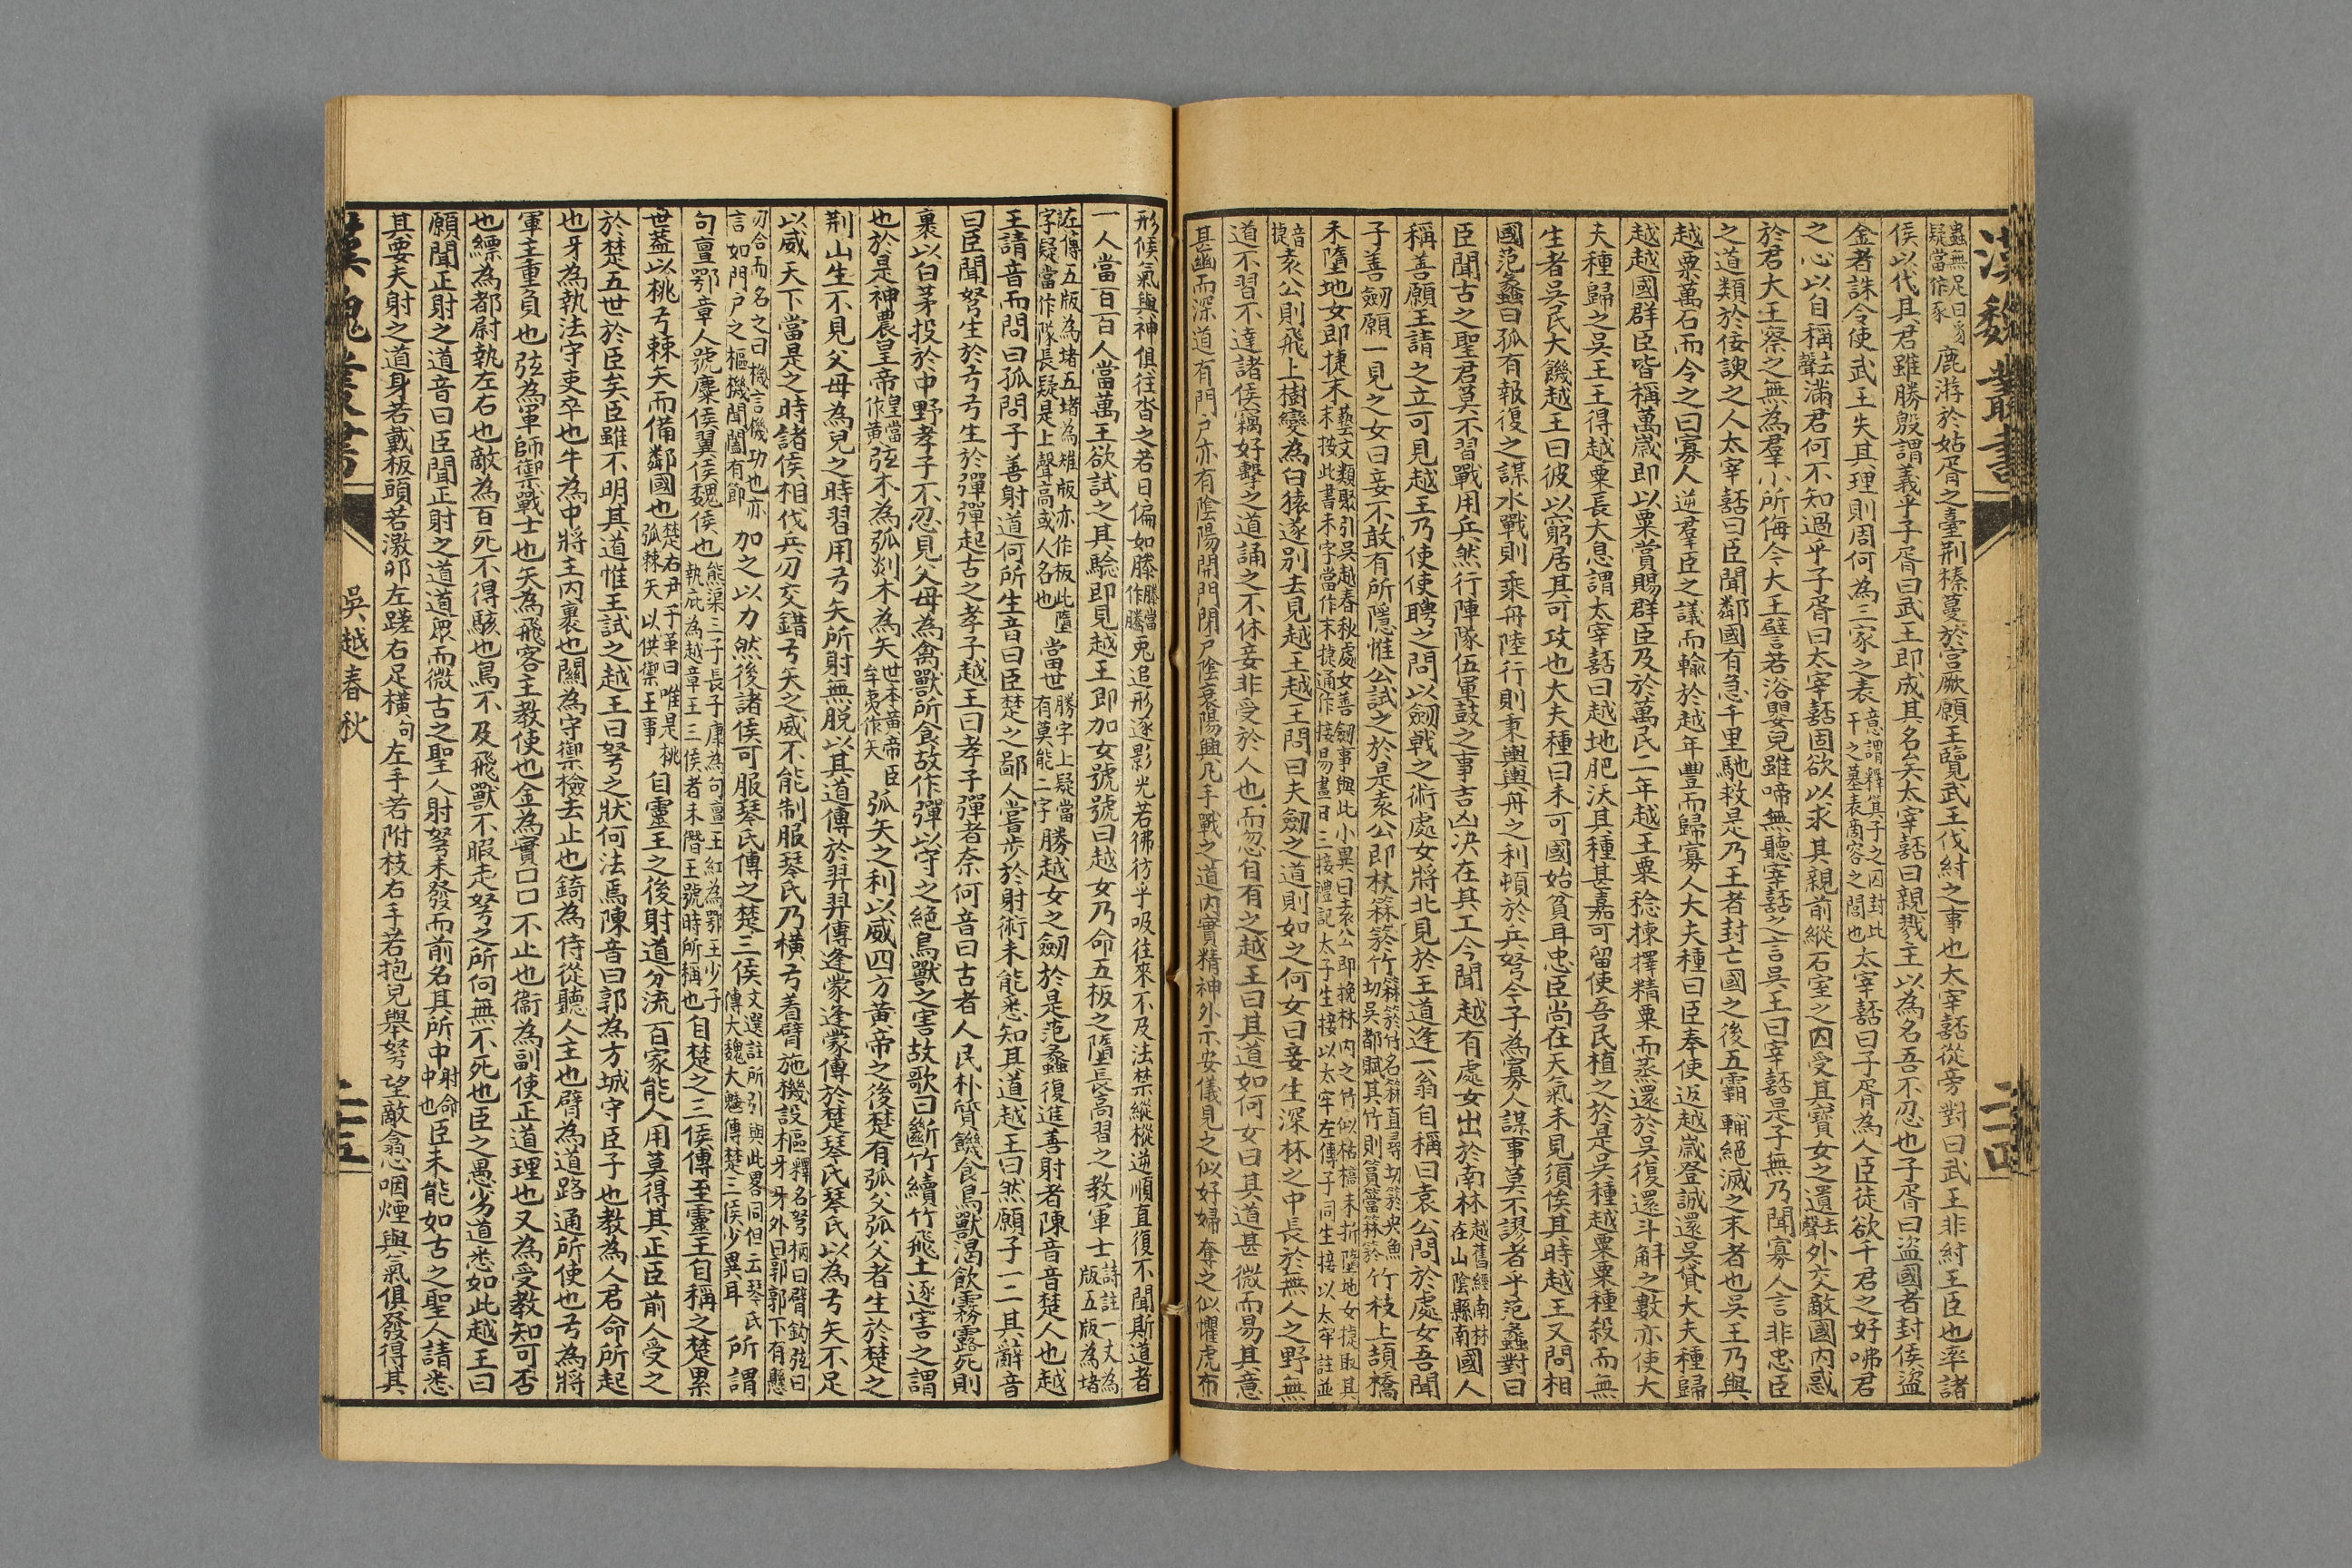 漢魏叢書
蟲無足曰豸疑當作豕鹿游於姑胥之臺荆榛蔓於宮厥願王覽武王伐紂之事也太宰嚭從旁對曰武王非紂王臣也率諸
侯以代其君雖勝殷謂義乎子胥曰武王即成其名矣太宰嚭曰親戮主以為名吾不忍也子胥曰盜國者封侯盜
金者誅令使武王失其理則周何為三家之表意謂釋箕子之囚封比干之墓表商容之閭也太宰嚭曰子胥為人臣徒欲千君之好咈君
之心以自稱去聲滿君何不知過乎子胥曰太宰嚭固欲以求其親前縱石室之囚受其寶女之遺去聲外交敵國内惑
於君大王察之無為羣小所侮今大王譬若浴嬰兒雖啼無聽宰嚭之言吳王曰宰嚭是子無乃聞寡人言非忠臣
之道類於佞諛之人太宰嚭曰臣聞鄰國有急千里馳救是乃王者封亡國之後五霸輔絕滅之末者也吳王乃與
越粟萬石而令之曰寡人逆羣臣之議而輸於越年豐而歸寡人大夫種曰臣奉使返越歲登誠還吳貸大夫種歸
越越國群臣皆稱萬歲即以粟賞賜群臣及於萬民二年越王粟稔揀擇精粟而蒸還於吳復還斗斛之數亦使大
夫種歸之吳王王得越粟長大息謂太宰嚭曰越地肥沃其種甚嘉可留使吾民植之於是吳種越粟粟種殺而無
生者吳民大饑越王曰彼以窮居其可攻也大夫種曰未可國始貧耳忠臣尚在天氣未見須俟其時越王又問相
國范蠡曰孤有報復之謀水戰則乘舟陸行則乘輿輿舟之利頓於兵弩今子為寡人謀事莫不謬者乎范蠡對曰
臣聞古之聖君莫不習戰用兵然行陣隊伍軍鼓之事吉凶决在其工今聞越有處女出於南林越舊經南林在山陰縣南國人
稱善願王請之立可見越王乃使使聘之問以劒戟之術處女將北見於王道逢一翁自稱曰袁公問於處女吾聞
子善劒願一見之女曰妾不敢有所隱惟公試之於是袁公即杖箖箊竹箖箊竹名箖直尋切箊央魚切吳都賦其竹則篔簹箖箊竹枝上頡橋
末墮地女即捷末藝文類聚引吳越春秋處女善劒事與此小異曰袁公即挽林内之竹似枯槁末折墮地女捷取其末按此書末字當作末捷通作接易晝日三接禮記太子生接以太牢左傳子同生接以太牢註並
音捷袁公則飛上樹變為白猿遂别去見越王越王問曰夫劒之道則如之何女曰妾生深林之中長於無人之野無
道不習不達諸侯竊好擊之道誦之不休妾非受於人也而忽自有之越王曰其道如何女曰其道甚微而易其意
其幽而深道有門戶亦有陰陽開門閉戶陰衰陽興凡手戰之道内實精神外示安儀見之似好婦奪之似懼虎布
形候氣與神俱往杳之若日偏如滕滕當作騰兎追形逐影光若彿彷乎吸往來不及法禁縱橫逆順直復不聞斯道者
一人當百百人當萬王欲試之其驗即見越王即加女號號曰越女乃命五板之墮長高習之教軍士詩註一丈為版五版為堵
左傳五版為堵五堵為雉版亦作板此墮字疑當作隊長疑是上聲高或人名也當世勝字上疑當有莫能二字勝越女之劒於是范蠡復進善射者陳音音楚人也越
王請音而問曰孤問子善射道何所生音曰臣楚之鄙人嘗步於射術未能悉知其道越王曰然願子一二其辭音
曰臣聞弩生於弓弓生於彈彈起古之孝子越王曰孝子彈者奈何音曰古者人民朴質饑食鳥獸渴飲霧露死則
裹以白茅投於中野孝子不忍見父母為禽獸所食故作彈以守之絕鳥獸之害故歌曰斷竹續竹飛土逐害之謂
也於是神農皇帝皇當作黃弦木為弧剡木為矢世本黃帝臣牟夷作矢弧矢之利以威四方黃帝之後楚有弧父弧父者生於楚之
荆山生不見父母為兒之時習用弓矢所射無脱以其道傳於羿羿傳逢蒙逢蒙傳於楚琴氏琴氏以為弓矢不足
以威天下當是之時諸侯相伐兵刃交錯弓矢之威不能制服琴氏乃橫弓着臂施機設樞釋名弩柄曰臂鈎弦曰牙牙外曰郭郭下有懸
刃合而名之曰機言機功也亦言如門戶之樞機開闔有節加之以力然後諸侯可服琴氏傳之楚三侯文選註所引與此畧同但云琴氏傳大魏大魏傳楚三侯少異耳所謂
句亶鄂章人號麋侯翼侯魏侯也熊渠三子長子康為句亶王紅為鄂王少子執疵為越章王三侯者未僭王號時所稱也自楚之三侯傳至靈王自稱之楚累
世蓋以桃弓棘矢而備鄰國也楚右尹子革曰唯是桃弧棘矢以供禦王事自靈王之後射道分流百家能人用莫得其正臣前人受之
於楚五世於臣矣臣雖不明其道惟王試之越王曰弩之狀何法焉陳音曰郭為方城守臣子也教為人君命所起
也牙為執法守吏卒也牛為中將主内裏也關為守禦檢去止也錡為侍從聽人主也臂為道路通所使也弓為將
軍主重負也弦為軍師禦戰士也矢為飛客主教使也金為實口口不止也衞為副使正道理也又為受教知可否
也縹為都尉執左右也敵為百死不得駭也鳥不及飛獸不暇走弩之所向無不死也臣之愚劣道悉如此越王曰
願聞正射之道音曰臣聞正射之道道衆而微古之聖人射弩未發而前名其所中射命中也臣未能如古之聖人請悉
其要夫射之道身若戴板頭若激卵左蹉右足橫句左手若附枝右手若抱兒舉弩望敵翕心咽煙與氣俱發得其
吳越春秋